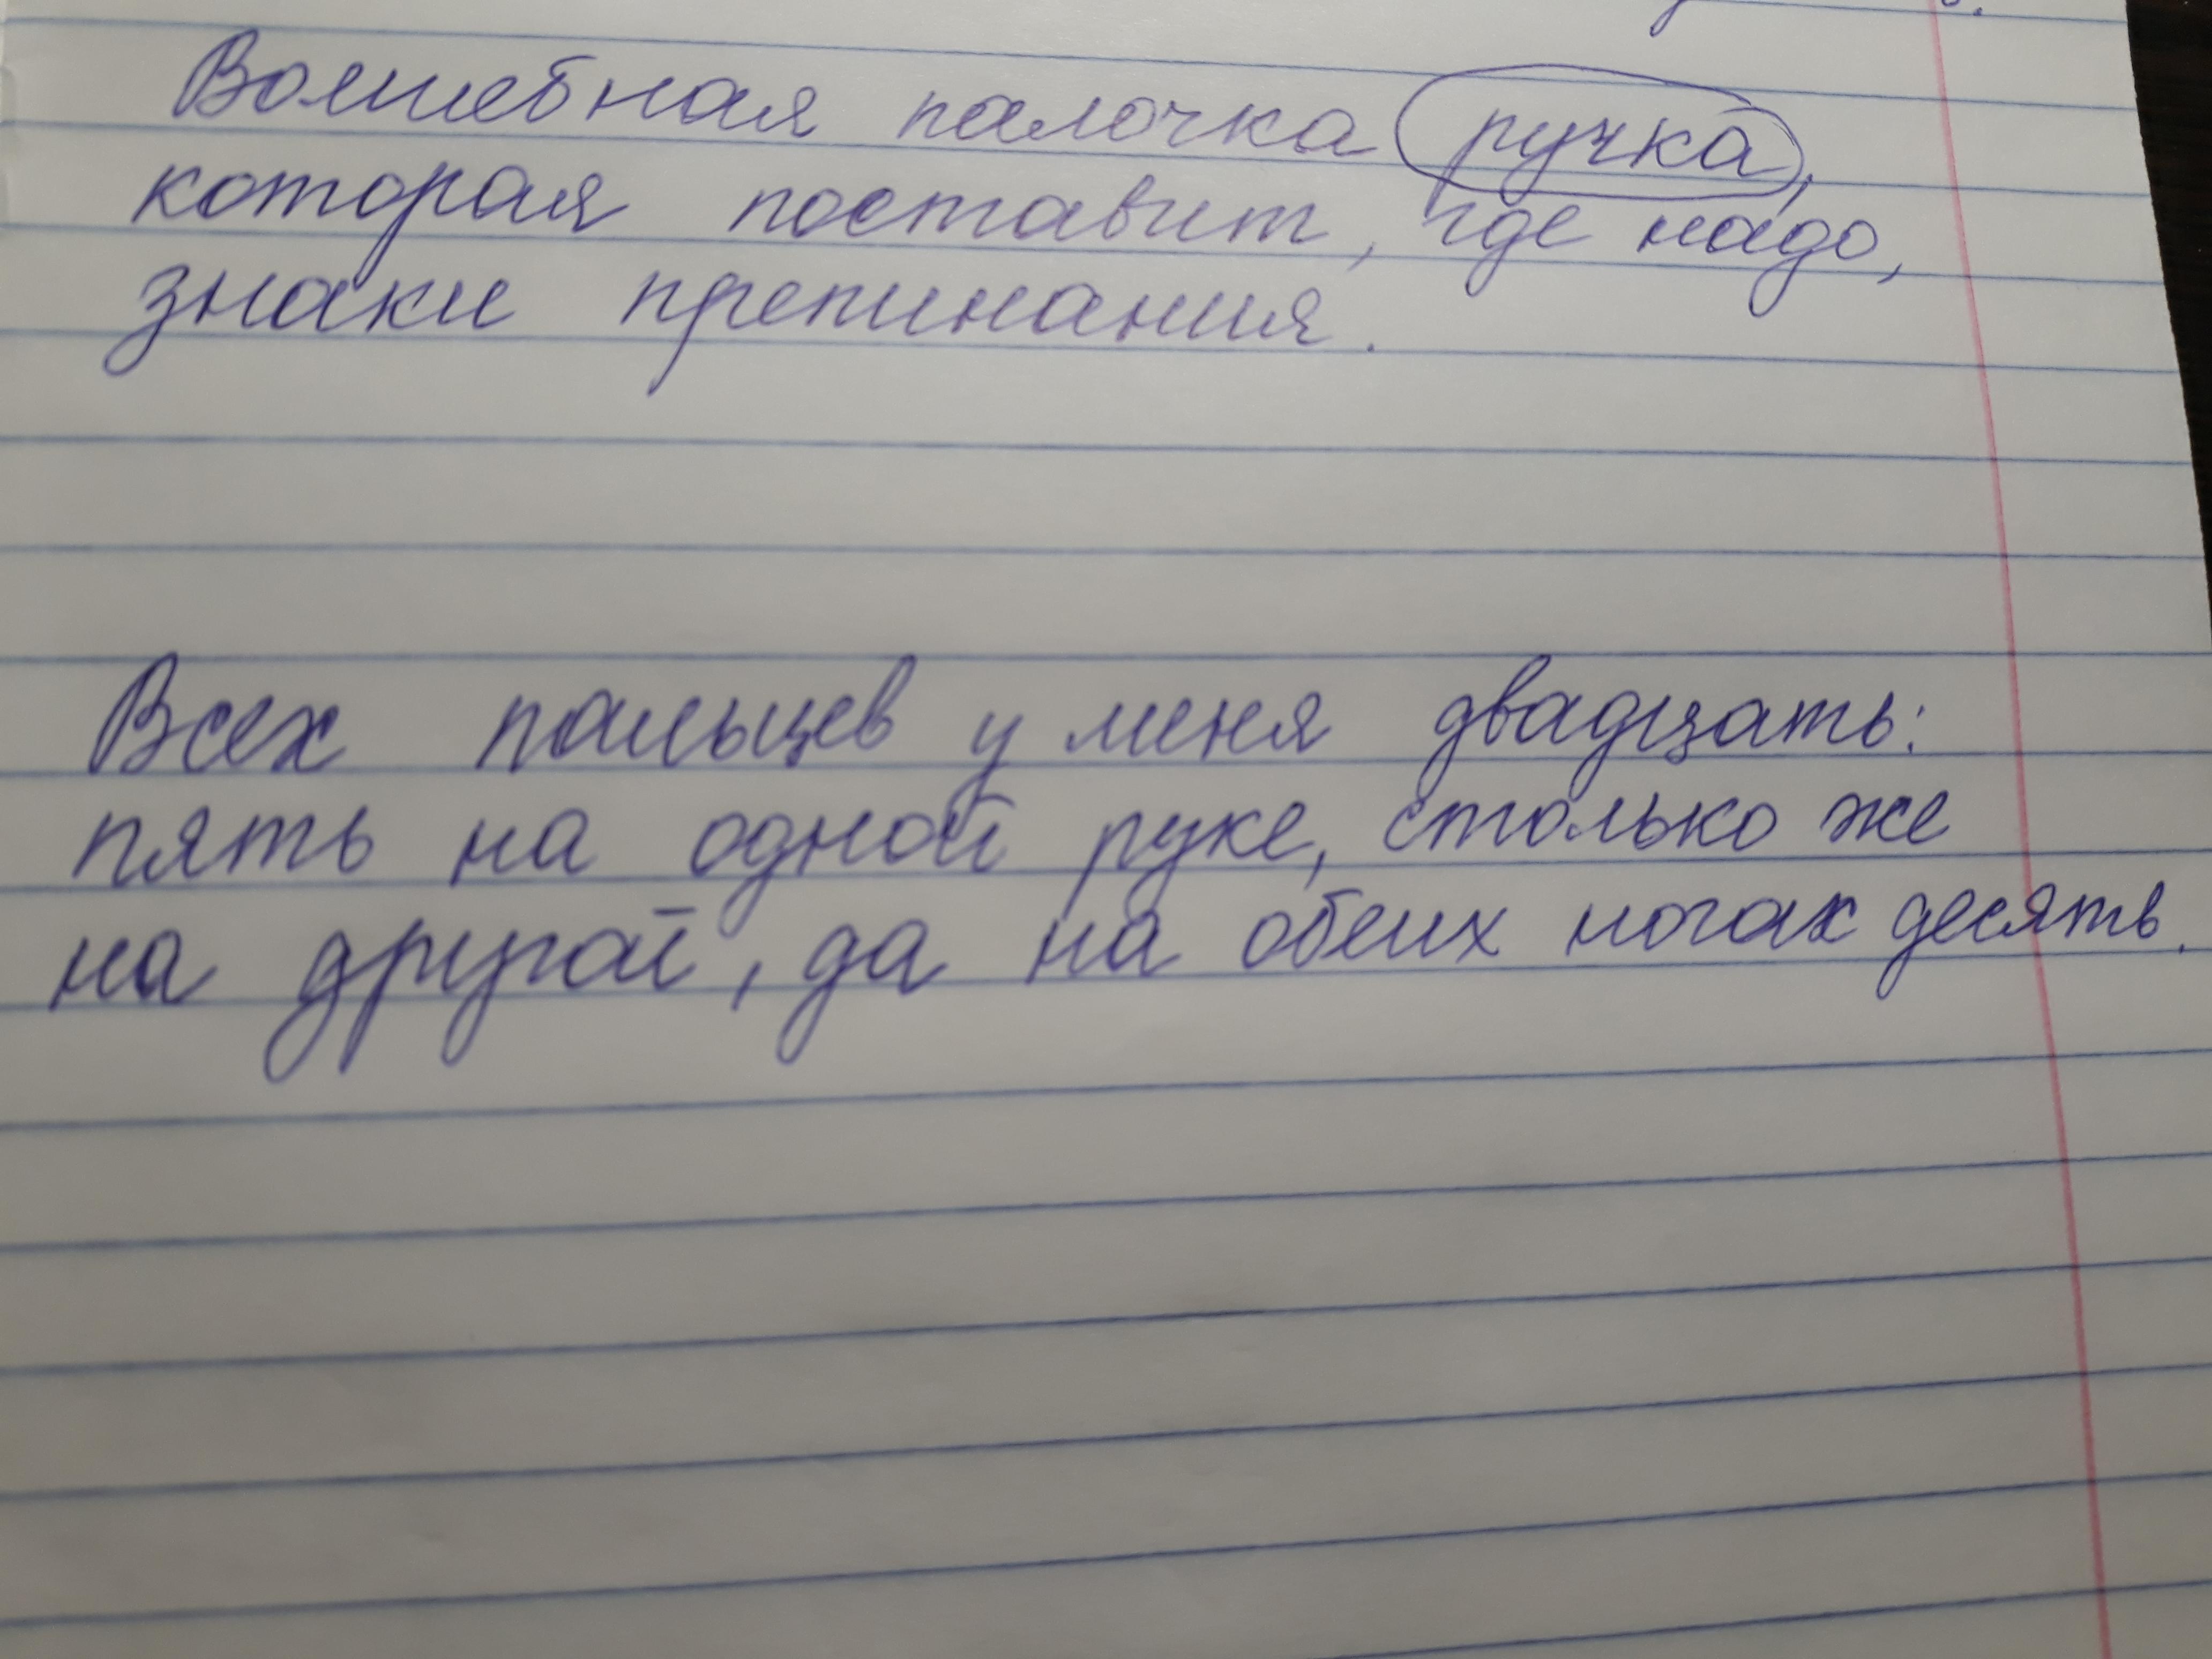 Волшебная палочка ручка,
которая поставит, где надо,
знаки препинания.
Всех пальцев у меня двадцать:
пять на одной руке, столько же
на другой, да на обеих ногах десять.